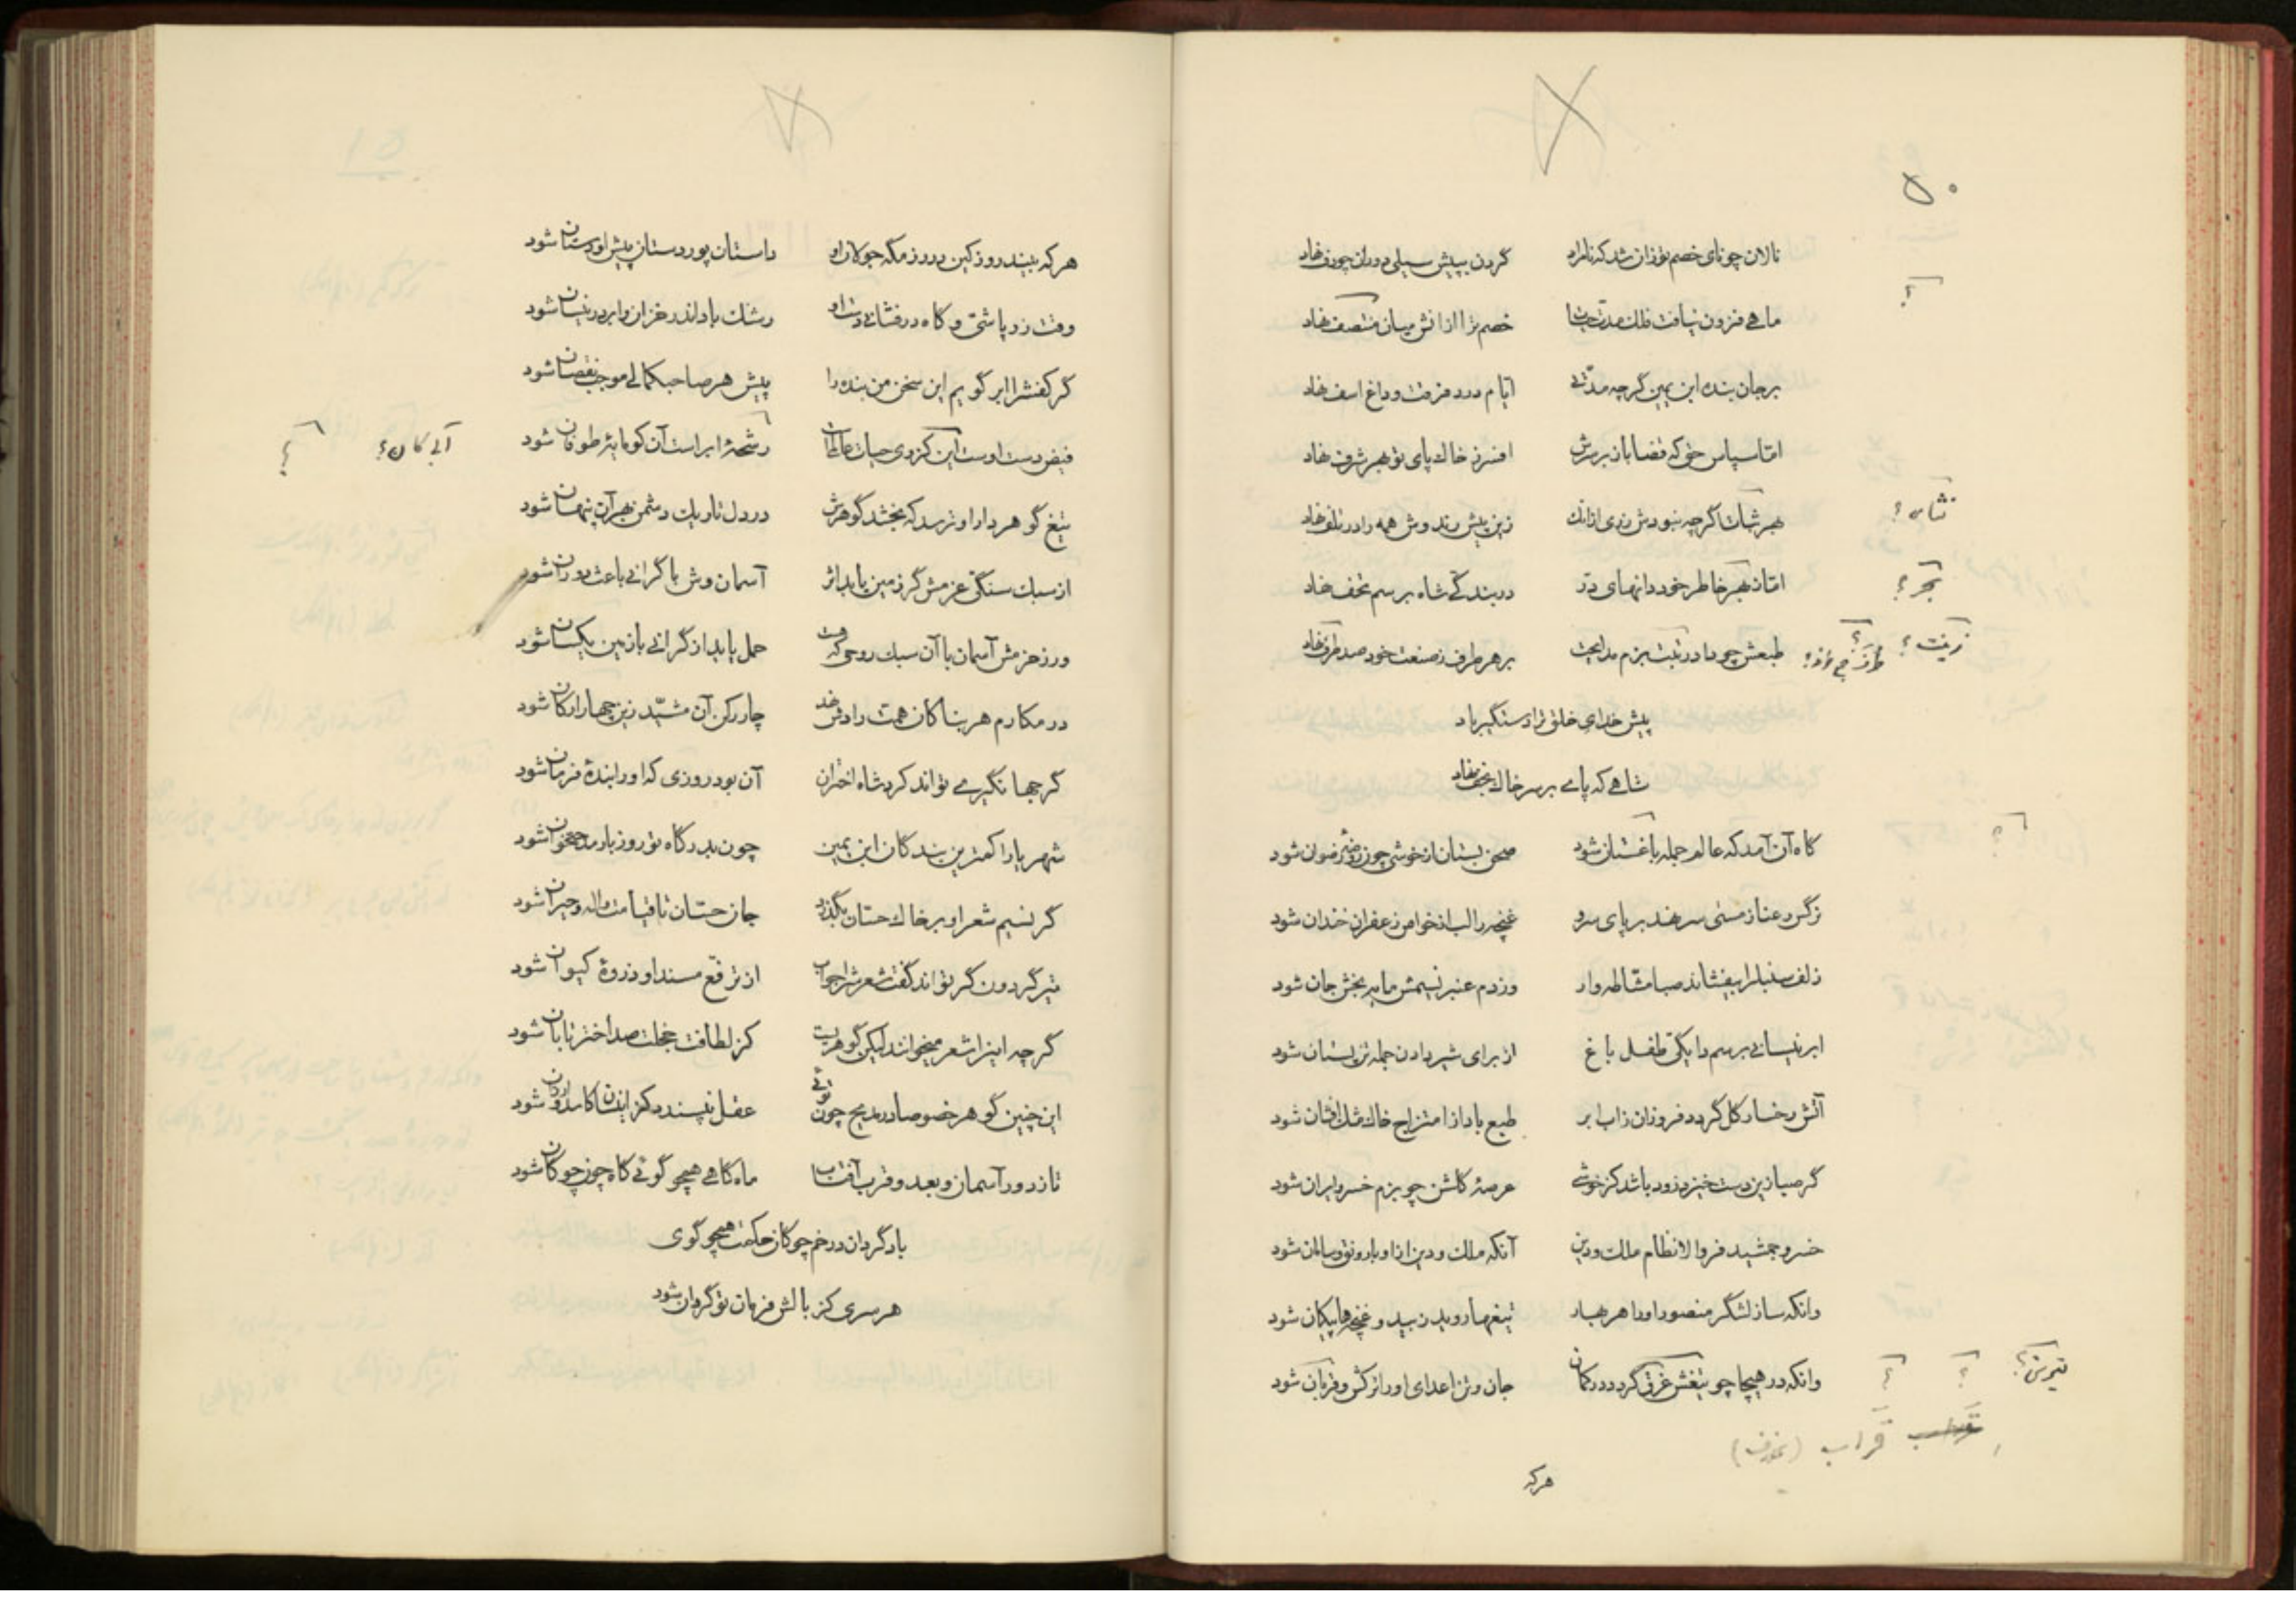 ۵۰
نالان چو نای خصم تو زان شد که نامراد گردن بپیش سیلی دوران چو دف نهاد
ماهی فزون نیافت فلک مدت حیات خصم ترا از آتش میان منتصف نهاد
بر جان بنده ابن یمین گرچه مدّتی ایّام درد فرقت و داغ اسف نهاد
امّا سپاس حق که قضا باز بر سرش افسر ز خاک پای تو بهر شرف نهاد
نثار؟
بهر گرچه نبودش زری از آنک زین پیش رند وش همه را در تلف نهاد
بحر؟
امّا ز بهر خاطر خود دانهای درّ در بندگی شاه برسم تحف نهاد
زینت؟
طبعش چو داد زینت بزم مدایحت بر هر طرف ز صنعت خود صد طرف نهاد
پیش خدای خلق ترا دستگیر باد
شاهی که پای بر سر خاک نجف نهاد
گاه آن آمد که عالم جمله باغستان شود صحن بستان از خوشی چون روضهٔ رضوان شود
نرگس رعنا ز مستی سر نهد بر پای سرو غنچه را لب از خواص زعفران خندان شود
زلف سنبل را بیفشاند صبا مشّاطه وار وز دم عنبر نسیمش مایه بخش جان شود
ابر نیسانی برسم دایگی طفل باغ از برای شیر دادن جمله تن پستان شود
آتش رخسار گل گردد فروزان ز آب ابر طبع باد از امتزاج خاک مشک افشان شود
گر صبا زین دست خیزد زود باشد کز خوشی عرصهٔ گلشن چو بزم خسرو ایران شود
خسرو جمشید فر والا نظام ملک و دین آنکه ملک و دین ازو با رونق و سامان شود
وانکه ساز لشگر منصور او را هر بهار تیغها روید ز بید و غنچه ها پیکان شود
تیرش؟
وانکه در هیجا چو تیغش غرق گردد در کمان جان و تن اعدای او را ترکش و قربان شود
قراب
هر که
هر که بیند روز کین در رزمگه جولان او داستان پور دستان پیش او دستان شود
وقت زر پاشی و گاه در فشانی دست او رشک باد اندر خزان و ابر در نیسان شود
گر کفش را ابر گویم این سخن من بنده را پیش هر صاحبکمالی موجب نقصان شود
فیض دست اوست این کز وی حیات عالمست رشحهٔ ابر است آن کو مایهٔ طوفان شود
تیغ گوهردار او ترسد که بخشد گوهرش در دل تاریک دشمن بهر آن پنهان شود
از سبک سنگی عزمش گر زمین یابد اثر آسمان وش با گرانی باعث دوران شود
ور ز حزمش آسمان با آن سبک روحی که هست حمل یابد از گرانی با زمین یکسان شود
در مکارم هر بنا کان همت رادش نهد چار رکن آن مشیّد زین چهار ارکان شود
گر جهانگیری تواند کرد شاه اختران آن بود روزی که او را بندهٔ فرمان شود
شهریارا کمترین بندگان ابن یمین چون بدرگاه تو روز بار مدحتخوان شود
گر نسیم شعر او بر خاک حسّان بگذرد جان حسّان تا قیامت واله و حیران شود
تیر گردون گر تواند گفت شعرش را جواب از ترفّع مسند او ذروهٔ کیوان شود
گرچه اینرا شعر میخوانند لیکن گوهریست کز لطافت خجلت صد اختر تابان شود
این چنین گوهر خصوصا در مدیح چون توئی عقل نپسندد کز اینسان کاسد و ارزان شود
تا ز دور آسمان و بعد و قرب آفتاب ماه گاهی همچو گوئی گاه چون چوگان شود
باد گردان در خم چوگان حکمت همچو گوی
هر سری کز بالش فرمان تو گردان شود